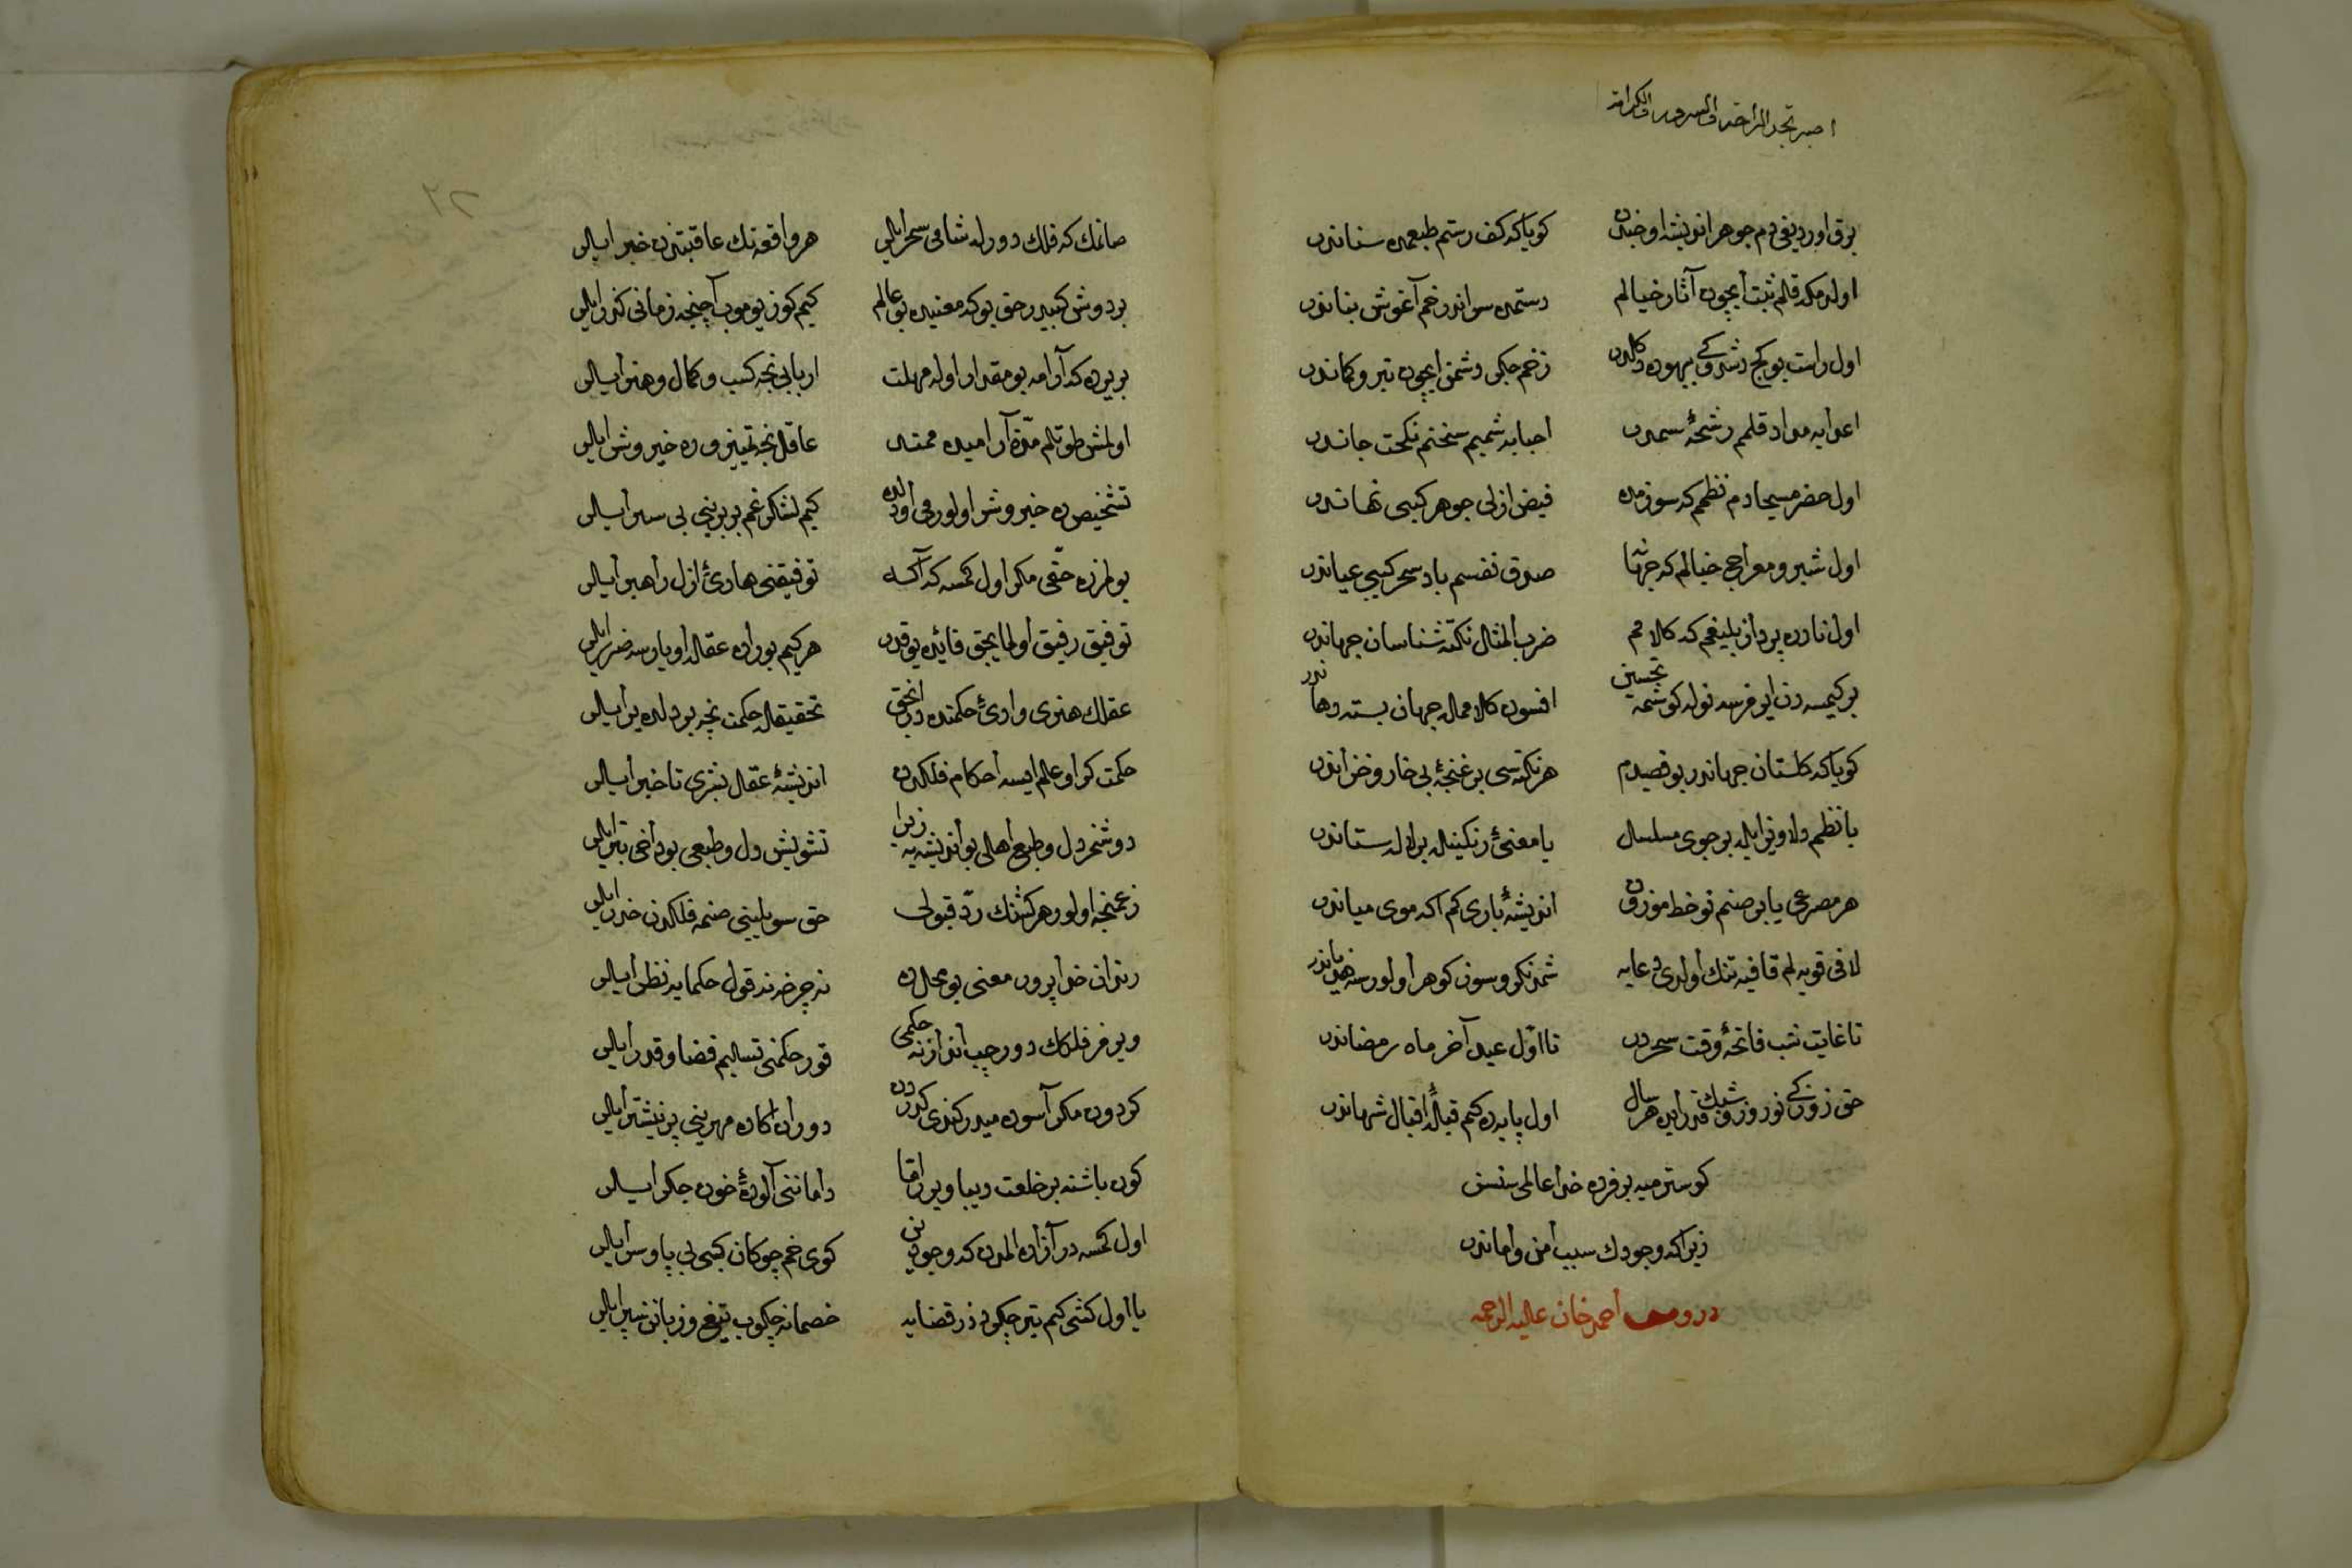 اصبر تجد الراحة والسرور والكرامة
برق اوردیغی دم جوهر اندیشه اوخندن کویا که کف رستم طبعمده سناندر
اولدمکه قلم ثبت ایچون آثار خیالم دستمده سواندر خم آغوش بناندر
اول راست بو کج زخم جکر دشمن ایچون تیر و کماندر
اعدایه مداد قلمم رشحهٔ سمدر احبایه شمیم سخنم نکهت جاندر
اول خضر مسیحا دم نظمم که سوزمده فیض ازلی جوهر کبی نهاندر
اول شیر و معراج خیالم که صدق نفسم باد سحر کبی عیاندر
اول نادره پرداز بلیغم که کلامم ضرب المثل نکته شناسان جهاندر
بر کیمسه دن ایو فرسه نوله کوشمه تحسین افسون کلاممله جهان بسته دهاندر
کویا که کلستان جهاندر بو قصیدم هر نکته سی بر غنجهٔ بی خار و خزاندر
یا نظم دلاویز ایله بر جوی مسلسل یا معنیٔ رنکینله بر لاله ستاندر
هر مصرعی یا بر صنم نو خط موزون اندیشهٔ باری کم اکه موی میاندر
لافی قویه لم قافیه تنک اولدی دعایه شمدنکرو سوز کوهر اولورسه هذیاندر
تا غایت شب فاتحهٔ وقت سحردر تا اول عید آخر ماه رمضاندر
حق روزکی نوروز و شبك قدر ایده هر سال اول پایه ده کیم قبلهٔ اقبال شهاندر
کوسترمیه بر فرده خدا عالمی سنسز
زیرا که وجودك سبب امن و اماندر
در ومف احمد خان علیه الرحمه
صانمك که فلك دور له شامی سحر ایلر هر واقعه نك عاقبتندن خبر ایلر
بر دوش کبیدر حق بو که معنیده بو عالم کیم کوز یوموب آچنجه زمانی کذر ایلر
بر یرده که آرامه بو مقدار اوله مهلت اربابی نجه کسب و کمال و هنر ایلر
اولمش طوتلم مدت آرامیده ممتد عاقل نجه تمییز و ره خیر و شر ایلر
تشخیص ده خیر و شر اولورمی اولده کیم لشکر غم بربرینی بی سپر ایلر
بولمزده حقی مکر اول کمسه که آکه توفیقنی هادیٔ ازل راهبر ایلر
توفیق رفیق اولمایجق فائده یوقدر هر کیم بوراده عقله اویارسه ضرر ایلر
عقلك هنری وادیٔ حکمتده در انجق تحقیقله حکمت نجه بر دلده یر ایلر
حکمت کر او علم ایسه احکام فلکدن اندیشهٔ عقل بشری تا خبر ایلر
دوشمز دل و طبع اهلی بو اندیشه یه زیرا تشویش دل و طبعی بو داخی بتر ایلر
زعمنجه اولور هر کشنك رد قبولی حق سویلینی صنمه فلکدن حذر ایلر
رندان خدا پرور معنی بو محلده نه چرخه نه قول حکمایه نظر ایلر
ویرمز فلکك دور چپ اندازنه حکمی قور حکمنی تسلیم قضا و قدر ایلر
کردون مکر آسوده میدر کندی کدردن دوران اکا ده مهرینی پر نیشتر ایلر
کون باشنه بر خلعت دیبا ویرر اما داماننی آلودهٔ خون جکر ایلر
اول کمسه در آزاده المدن که وجودین کوی خم چوکان کبی بی پا و سر ایلر
یا اول کشی کیم تیر جکردوز قضایه خصمانه چکوب تیغ و زبانن سپر ایلر